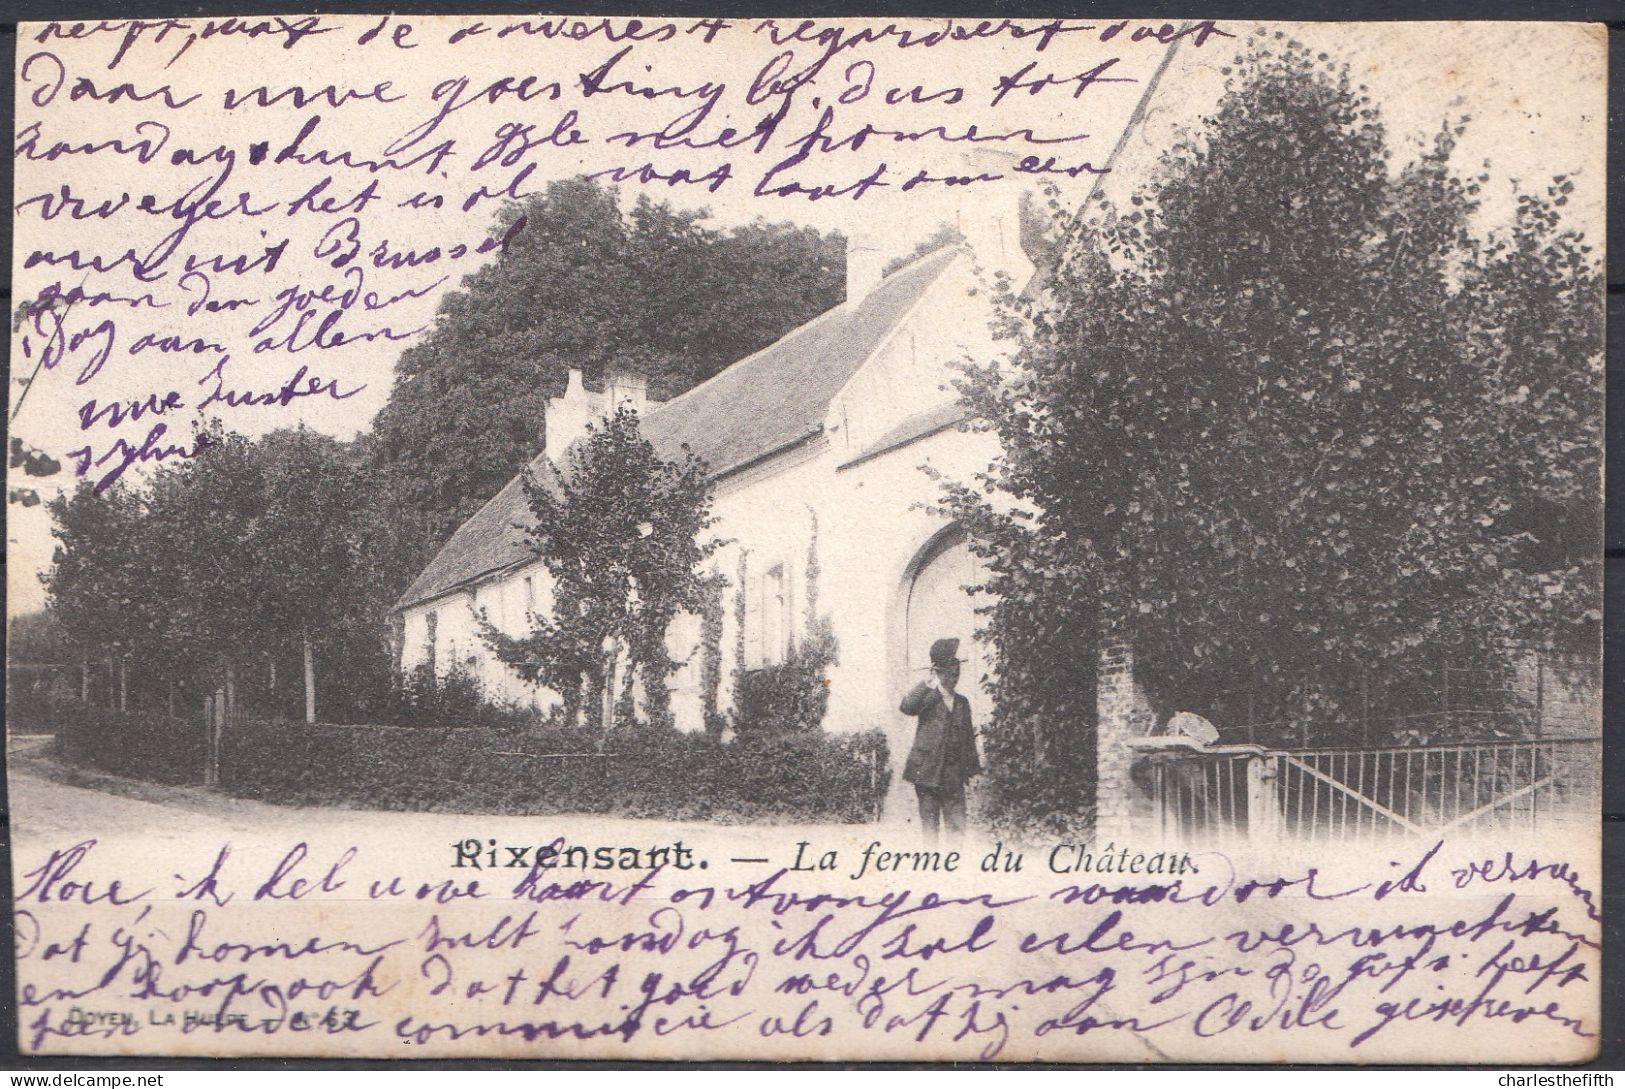 heeft, wat de anderest regardeert doet
daar uwe goesting bij. dus tot
zondag kunt gijle niet komen
vroeger het is al wat laat om een
uur uit Brussel
gaan den goeden
dag aan allen
uwe Zuster
Sylvie
Rixensart. — La ferme du Château.
ik heb uwe kaart ontvangen waardoor ik verneem
dat gij komen zult Zondag ik zal ulen verwachten
en hoop ook dat het goed weder mag zijn de heeft
zeer commissie als dat hij aan Odile geschreven
DOYEN, LA HULPE